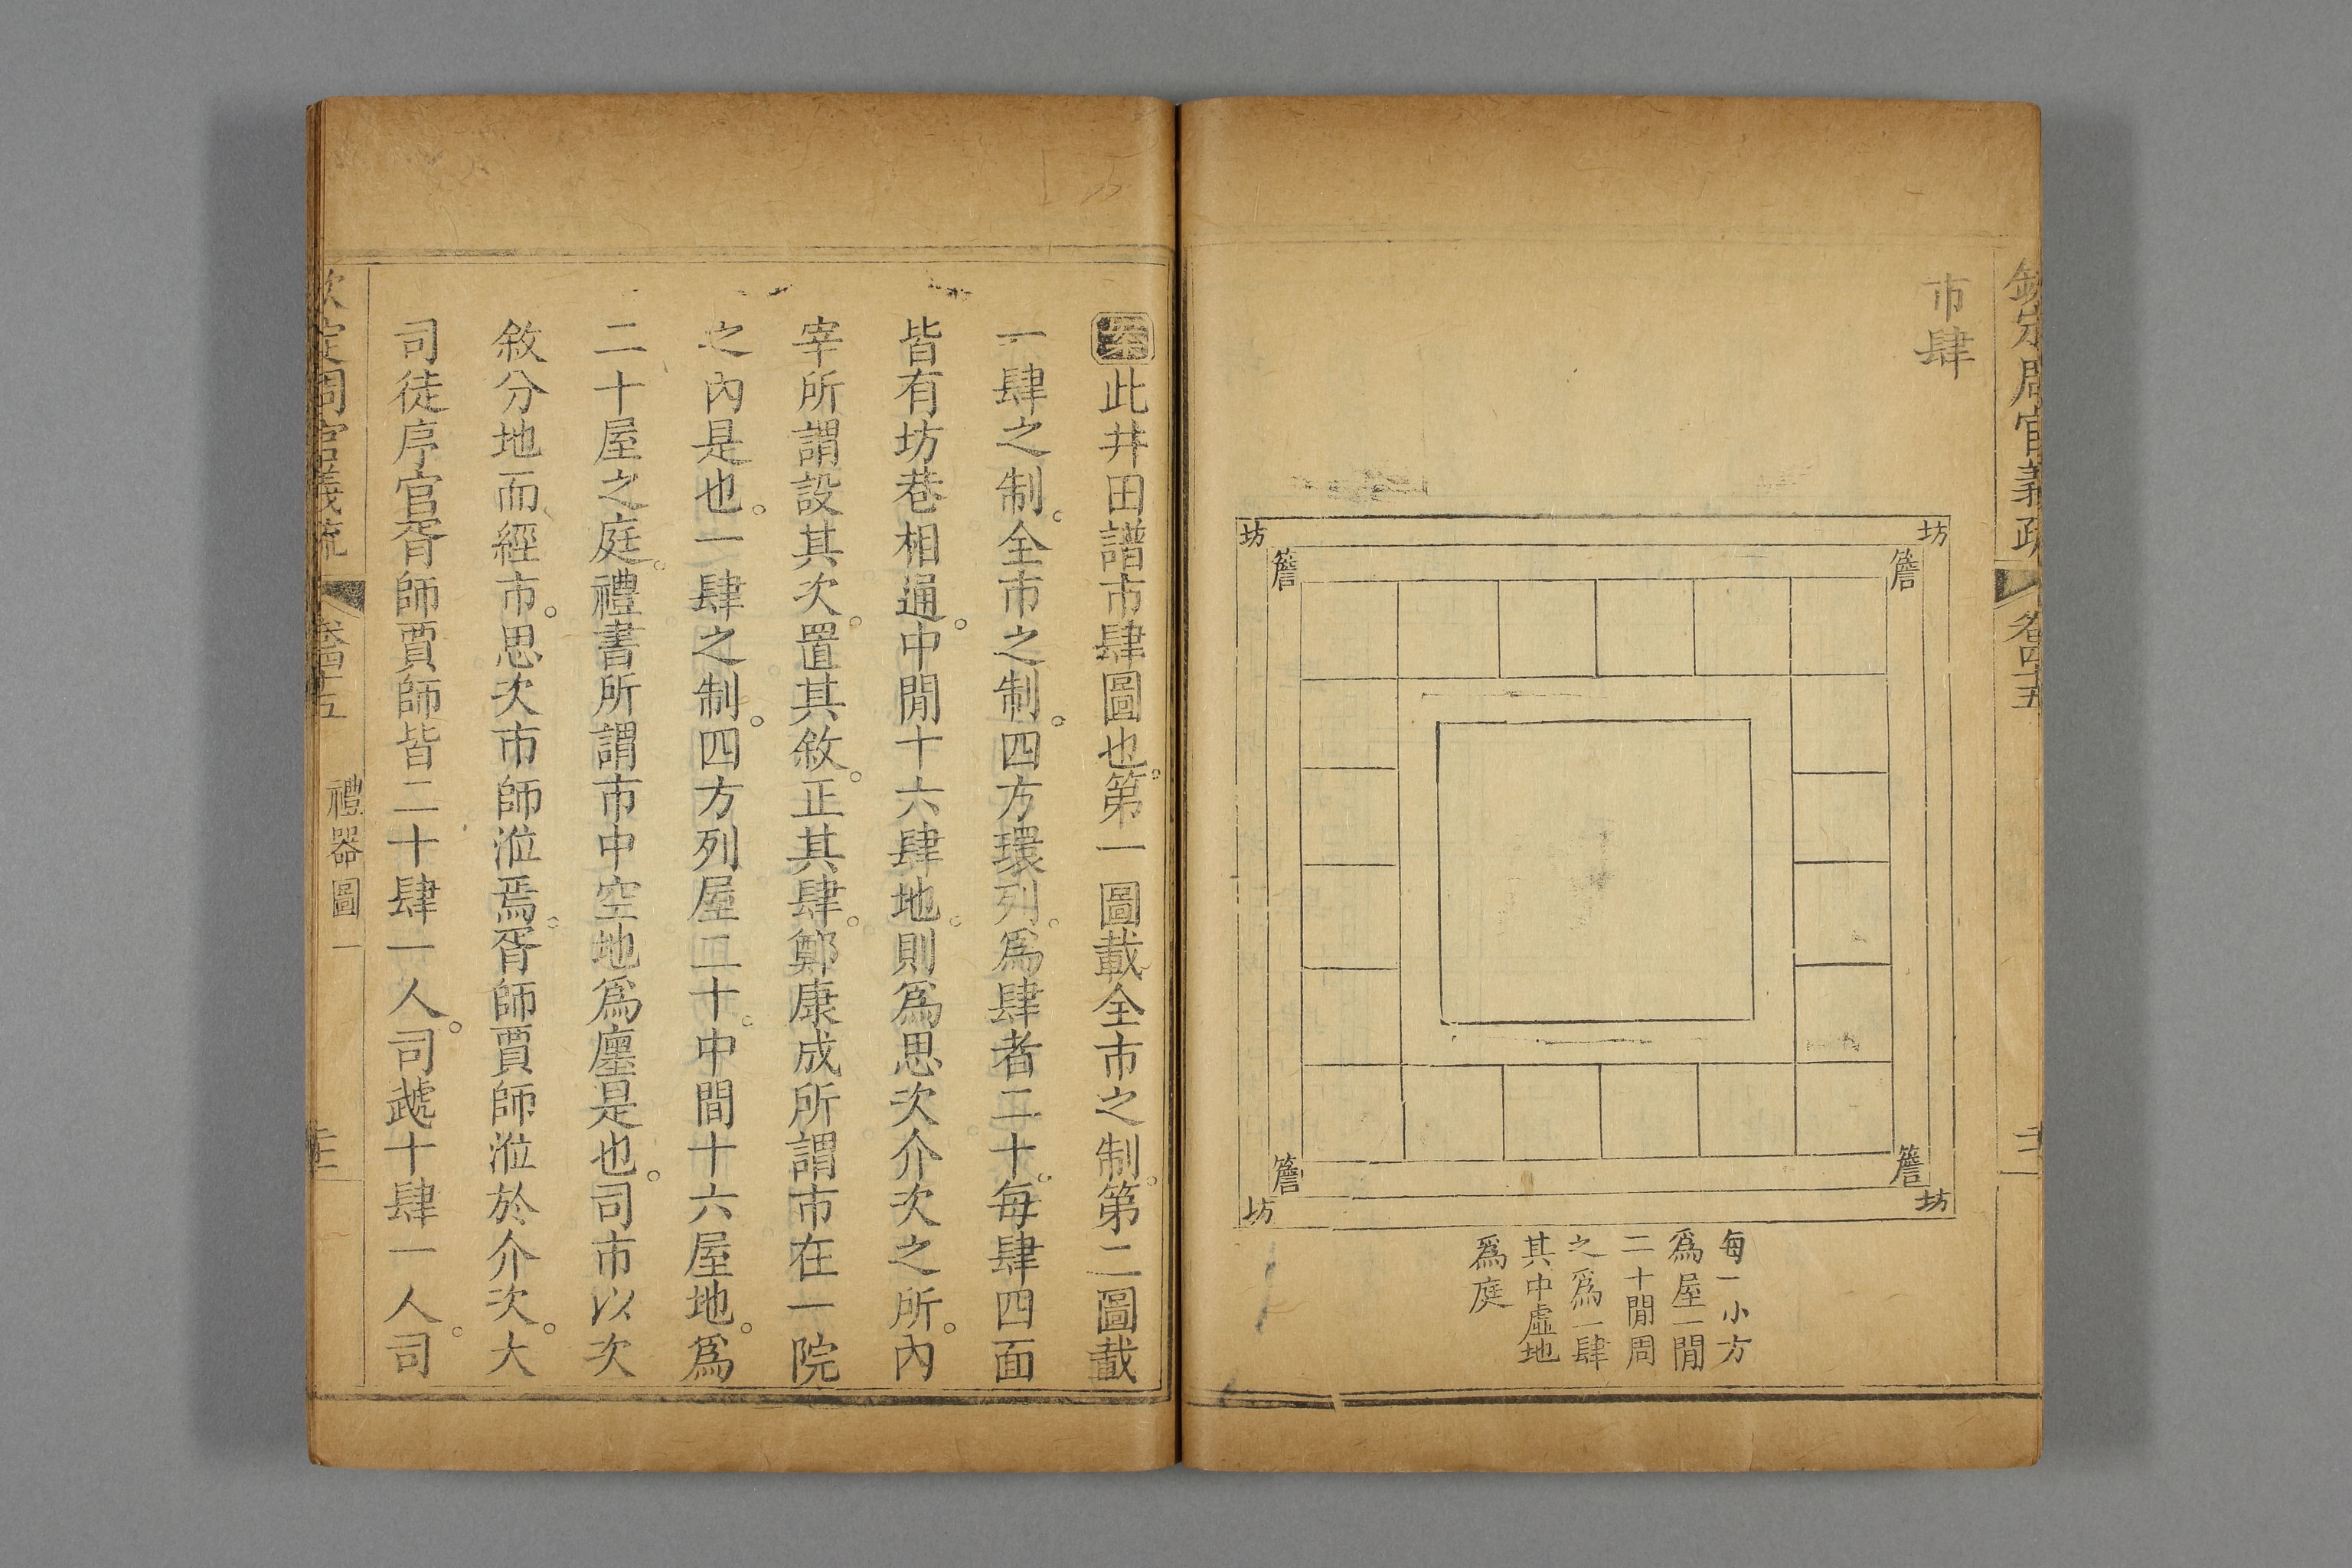 欽定周官義疏 卷四十五
市肆
坊 坊
簷 簷
簷 簷
坊 坊
每一小方
爲屋一閒
二十閒周
之爲一肆
其中虛地
爲庭
案此井田譜市肆圖也。第一圖載全市之制。第二圖載
一肆之制。全市之制。四方環列。爲肆者二十。每肆四面
皆有坊巷相通。中閒十六肆地。則爲思次介次之所。內
宰所謂設其次。置其敘。正其肆。鄭康成所謂市在一院
之內是也。一肆之制。四方列屋二十。中間十六屋地。爲
二十屋之庭。禮書所謂市中空地爲廛是也。司市以次
敘分地而經市。思次市師涖焉。胥師賈師涖於介次。大
司徒序官胥師賈師皆二十肆一人。司虣十肆一人。司
欽定周官義疏 卷四十五 禮器圖一